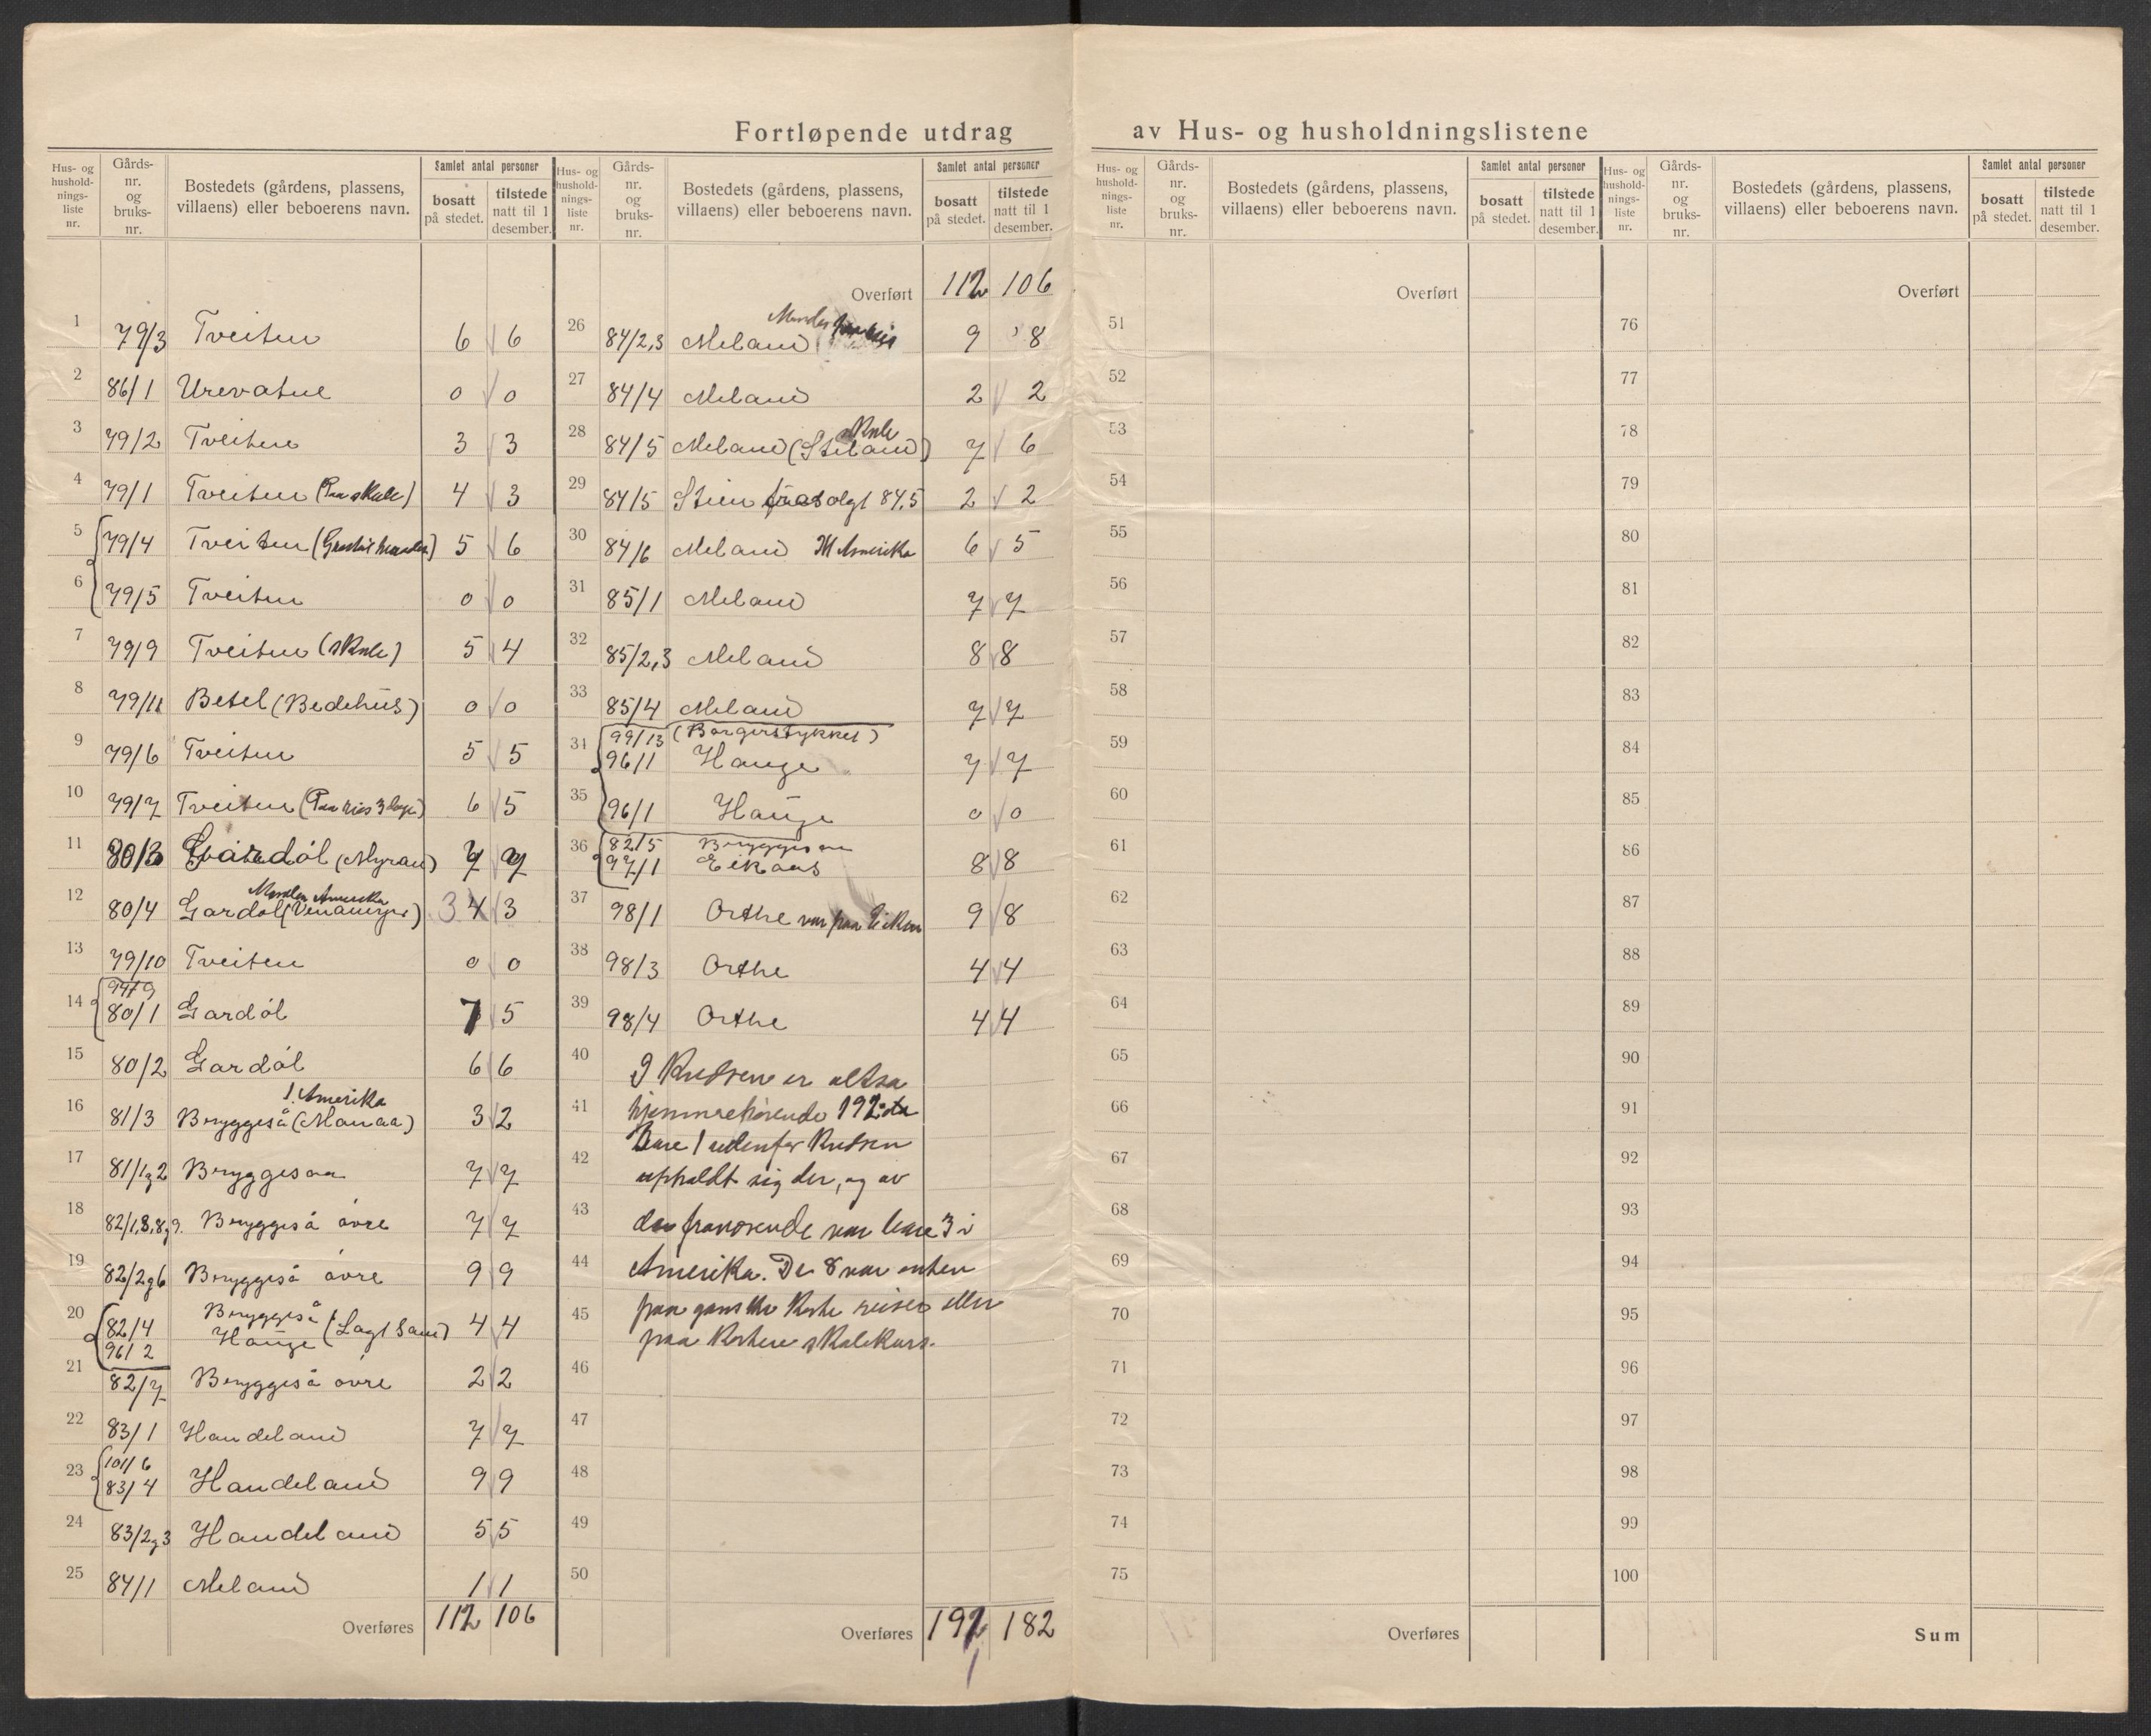 Fortløpende utdrag av Hus- og husholdningslistene
Hus- og hushold-nings-liste nr.
Gårds-nr. og bruks-nr.
Bostedets (gårdens, plassens, villaens) eller beboerens navn.
Samlet antal personer
bosatt på stedet.
tilstede natt til 1 desember.
1 79/3 Tveiten 6 6
2 86/1 Urevatne 0 0
3 79/2 Tveiten 3 3
4 79/1 Tveiten (Paa skule) 4 3
5 79/4 Tveiten 5 6
6 79/5 Tveiten 0 0
7 79/9 Tveiten (skule) 5 4
8 79/11 Betel (Bedehus) 0 0
9 79/6 Tveiten 5 5
10 79/7 Tveiten 6 5
11 80/3 Gardøl (Myran) 7 7
12 80/4 Gardøl Amerika 3 4 3
13 79/10 Tveiten 0 0
14 80/1 Gardøl 7 5
15 80/2 Gardøl 6 6
1. Amerika
16 81/3 Bryggeså (Monaa) 3 2
17 81/1g2 Bryggesaa 7 7
18 82/1,3,8g9. Bryggeså øvre 7 7
19 82/2g6 Bryggeså øvre 9 9
20 82/4 Bryggeså
96/2 Hauge 4 4
21 82/7 Bryggeså øvre 2 2
22 83/1 Handeland 7 7
23 101/6
83/4 Handeland 9 9
24 83/2g3 Handeland 5 5
25 84/1 Meland 1 1
Overføres 112 106
Hus- og hushold-nings-liste nr.
Gårds-nr. og bruks-nr.
Bostedets (gårdens, plassens, villaens) eller beboerens navn.
Samlet antal personer
bosatt på stedet.
tilstede natt til 1 desember.
Overført 112 106
26 84/2,3 Meland 9 8
27 84/4 Meland 2 2
skule
28 84/5 Meland (Steland) 7 6
29 84/5 Stien 84,5 2 2
30 84/6 Meland M Amerika 6 5
31 85/1 Meland 7 7
32 85/2,3 Meland 8 8
33 85/4 Meland 7 7
34 99/13 (Borgerstykket)
96/1 Hauge 7 7
35 96/1 Hauge 0 0
36 82/5 Bryggesaa
97/1 Eikaas 8 8
37 98/1 Orthe var paa Eiken 9 8
38 98/3 Orthe 4 4
39 98/4 Orthe 4 4
40 I Kredsen er altsa
41 hjemmehørende 192
Bare 1 udenfor Kredsen
42 opholdt sig der, og av
43 de fraværende var bare 3 i
44 Amerika. De 8 var enten
45 paa ganske korte reiser eller
paa kortere skulekurs.
46
47
48
49
50
Overføres 192 182
1
Hus- og hushold-nings-liste nr.
Gårds-nr. og bruks-nr.
Bostedets (gårdens, plassens, villaens) eller beboerens navn.
Samlet antal personer
bosatt på stedet.
tilstede natt til 1 desember.
Overført
51
52
53
54
55
56
57
58
59
60
61
62
63
64
65
66
67
68
69
70
71
72
73
74
75
Overføres
Hus- og hushold-nings-liste nr.
Gårds-nr. og bruks-nr.
Bostedets (gårdens, plassens, villaens) eller beboerens navn.
Samlet antal personer
bosatt på stedet.
tilstede natt til 1 desember.
Overført
76
77
78
79
80
81
82
83
84
85
86
87
88
89
90
91
92
93
94
95
96
97
98
99
100
Sum